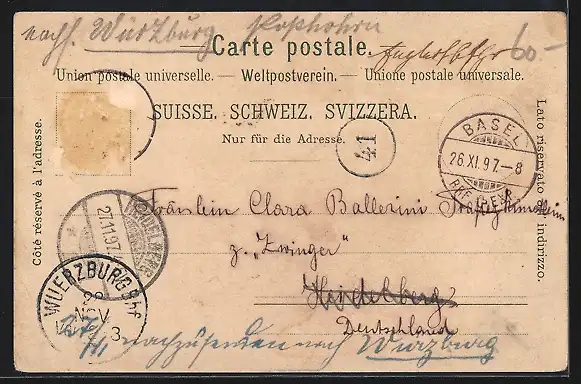 nachf. Würzburg
60-
Carte postale.
Union postale universelle. — Weltpostverein. — Unione postale universale.
SUISSE. SCHWEIZ. SVIZZERA.
Nur für die Adresse.
Côté réservé à l'adresse.
Lato riservato all'indirizzo.
41
BASEL
26.XI.97.-8
BRF. EXP.
HEIDELBERG
27.11.97
Fräulein Clara Ballerini
z. "Zwinger"
Heidelberg
Deutschland
WUERZBURG Bhf.
28
NOV
3
nachzusenden nach Würzburg